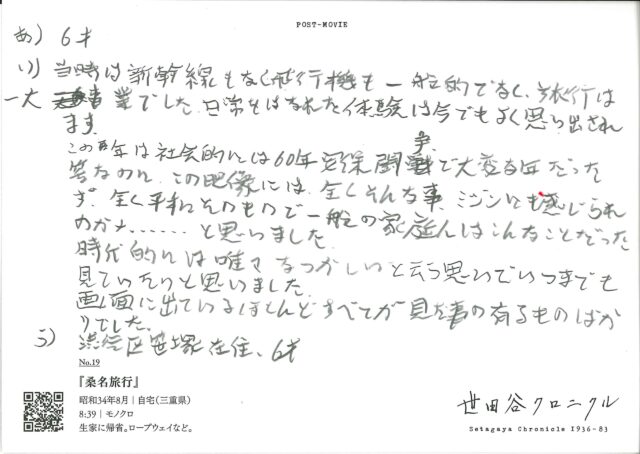 POST-MOVIE
あ) 6才
い) 当時は新幹線もなく飛行機も一般的でなく、旅行は
一大事業でした。日常をはなれた体験は今でもよく思い出され
ます。
この年は社会的には60年安保闘争で大変な年だった
筈なのに、この映像には、全くそんな事、ミジンにも感じられ
ず、全く平和そのもので一般の家庭んはこんなことだった
のかナ……と思いました。
時代的には唯々なつかしいと云う思いでいつまでも
見ていたいと思いました。
画面に出ているほとんどすべてが見た事の有るものばか
りでした。
う) 渋谷区笹塚在住、6才
No.19
『桑名旅行』
昭和34年8月｜自宅(三重県)
8:39｜モノクロ
生家に帰省。ロープウェイなど。
世田谷クロニクル
Setagaya Chronicle 1936-83